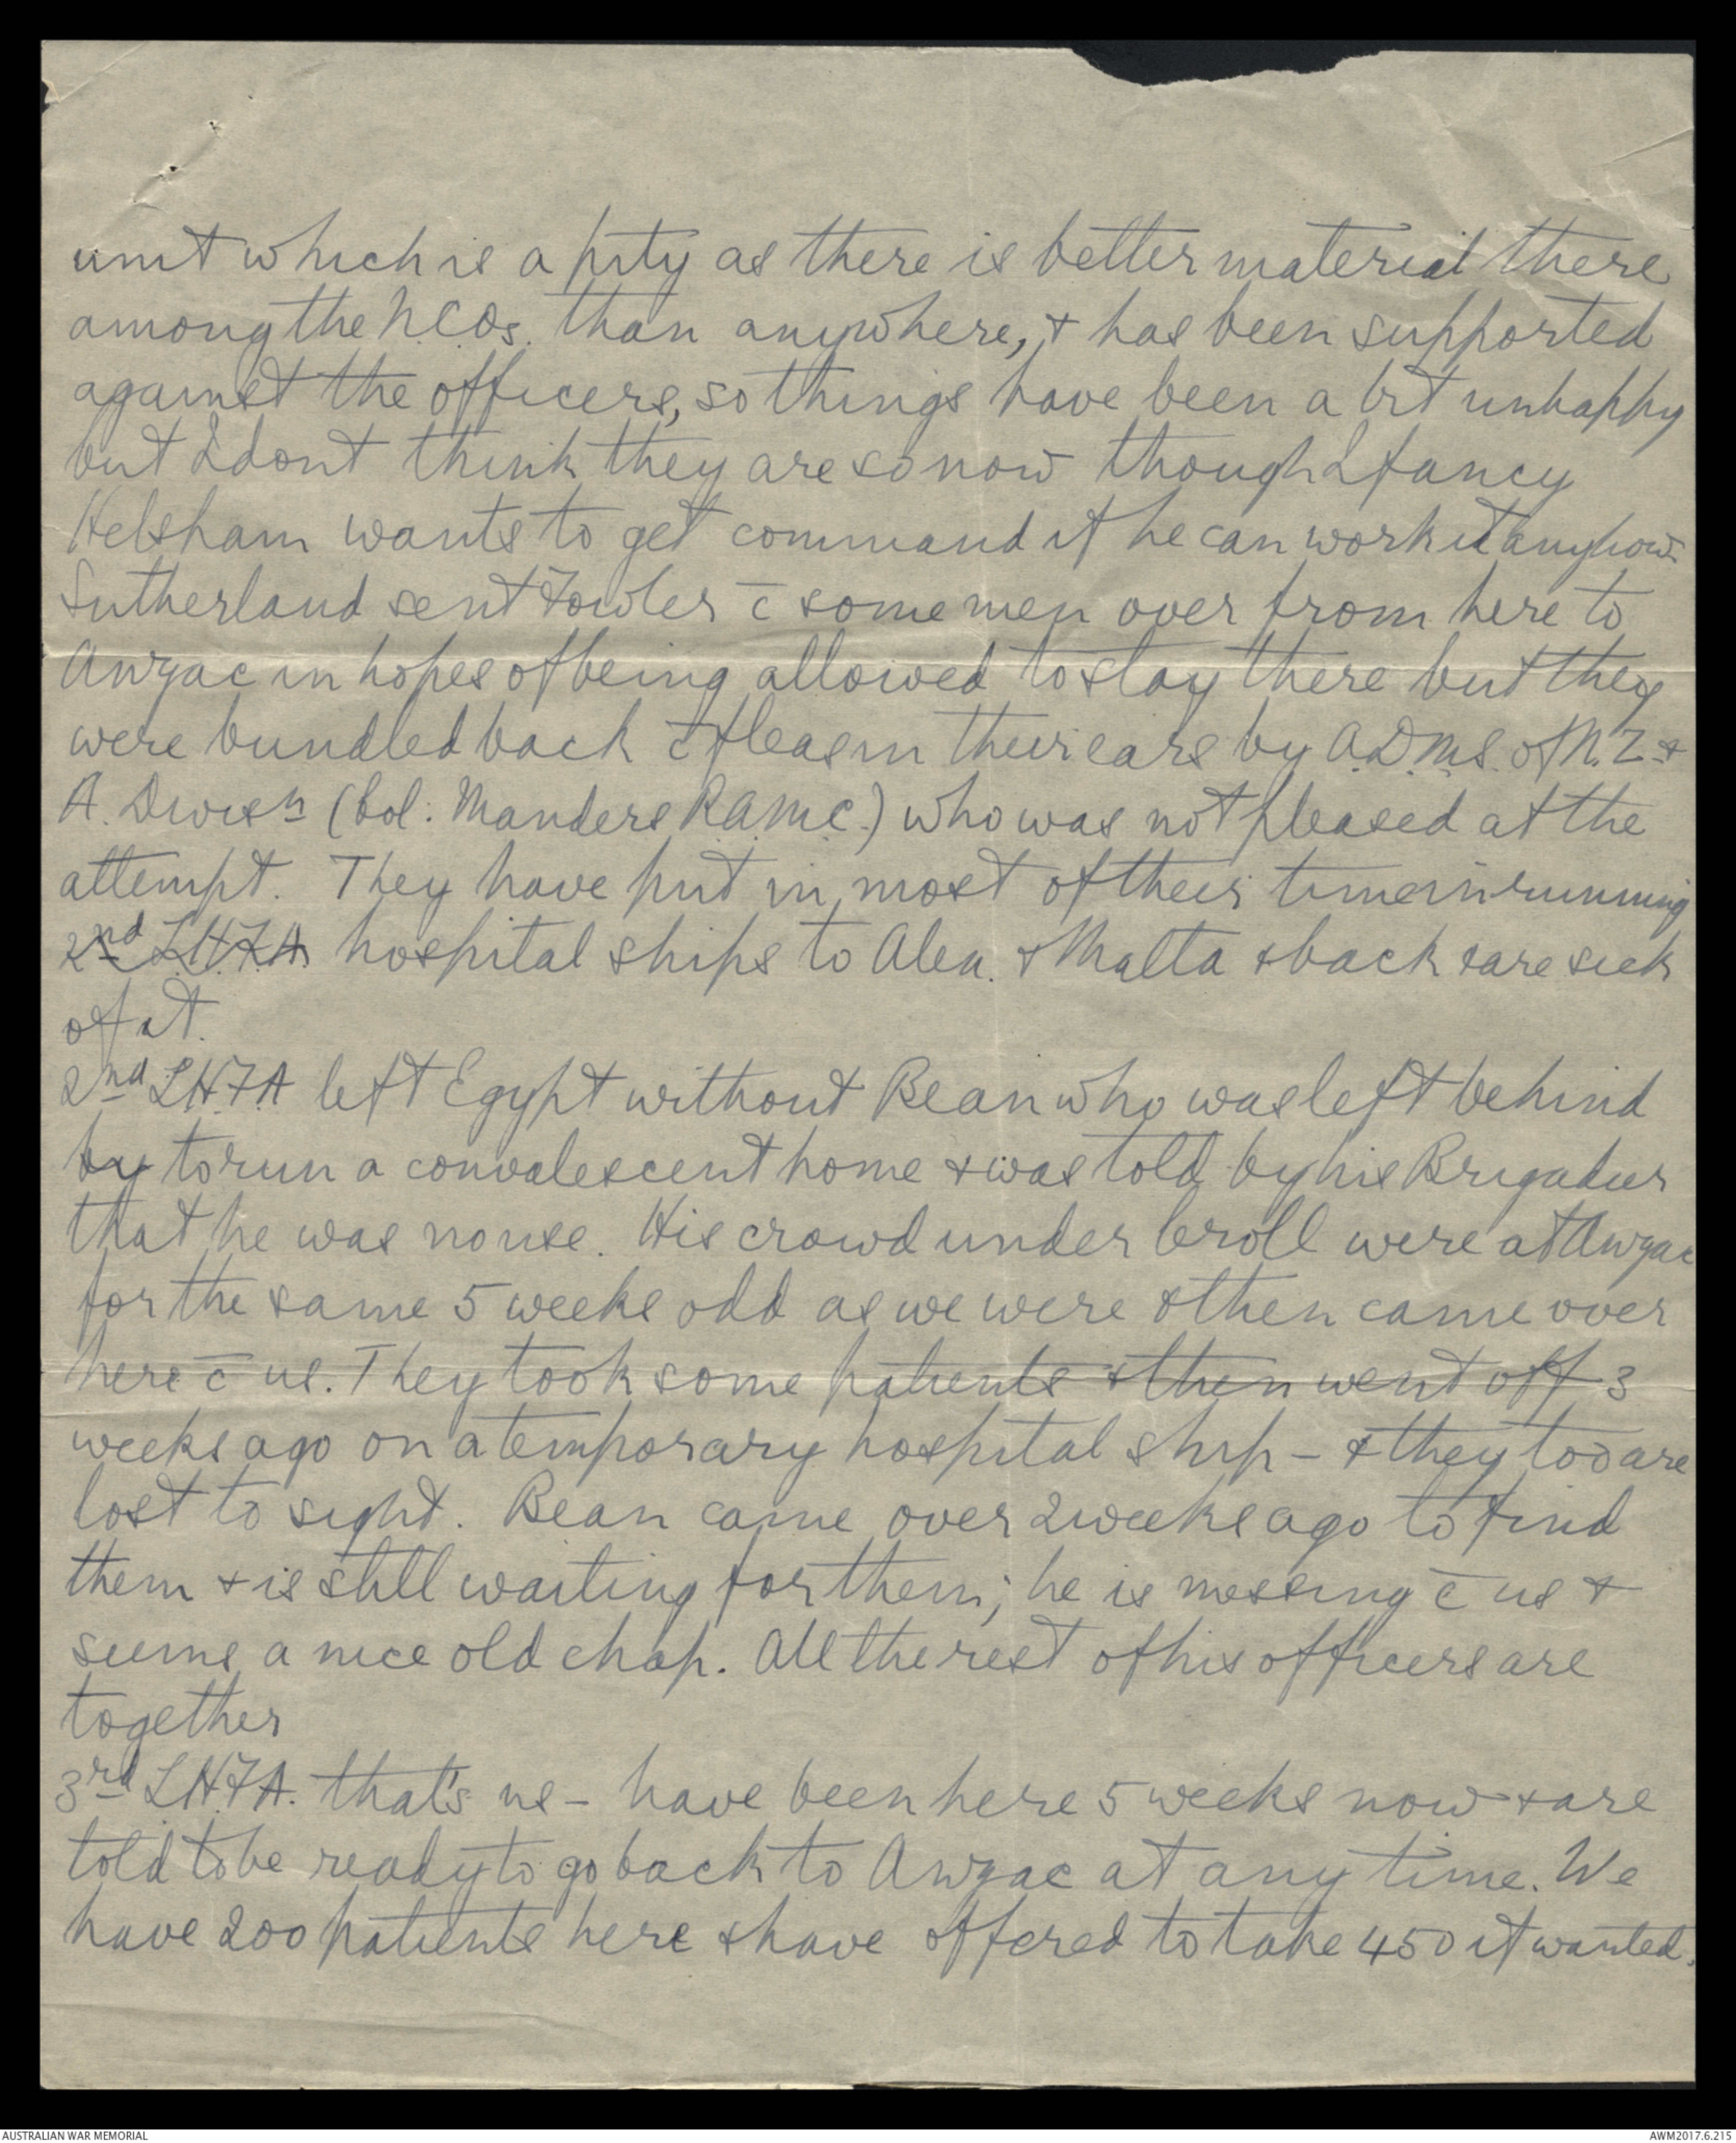 unit which is a pity as there is better material there
among the N.C.Os. than anywhere, & has been supported
against the officers, so things have been a bit unhappy
but I dont think they are so now though I fancy
Helsham wants to get command if he can work it anyhow.
Sutherland sent Fowler c̄ some men over from here to
Anzac in hopes of being allowed to stay there but they
were bundled back c̄ fleas in their ears by A.D.M.S. of N.Z. &
A. Divisn (Col: Manders R.A.M.C.) who was not pleased at the
attempt. They have put in most of their time in running
2nd L.H.F.A. hospital ships to Alex. & Malta & back & are sick
of it.
2nd L.H.F.A left Egypt without Bean who was left behind
by to run a convalescent home & was told by his Brigadier
that he was no use. His crowd under Croll were at Anzac
for the same 5 weeks odd as we were & then came over
here c̄ us. They took some patients & then went off 3
weeks ago on a temporary hospital ship – & they too are
lost to sight. Bean came over 2 weeks ago to find
them & is still waiting for them; he is messing c̄ us &
seems a nice old chap. All the rest of his officers are
together
3rd L.H.F.A. that's us – have been here 5 weeks now & are
told to be ready to go back to Anzac at any time. We
have 200 patients here & have offered to take 450 if wanted.
AUSTRALIAN WAR MEMORIAL
AWM2017.6.215